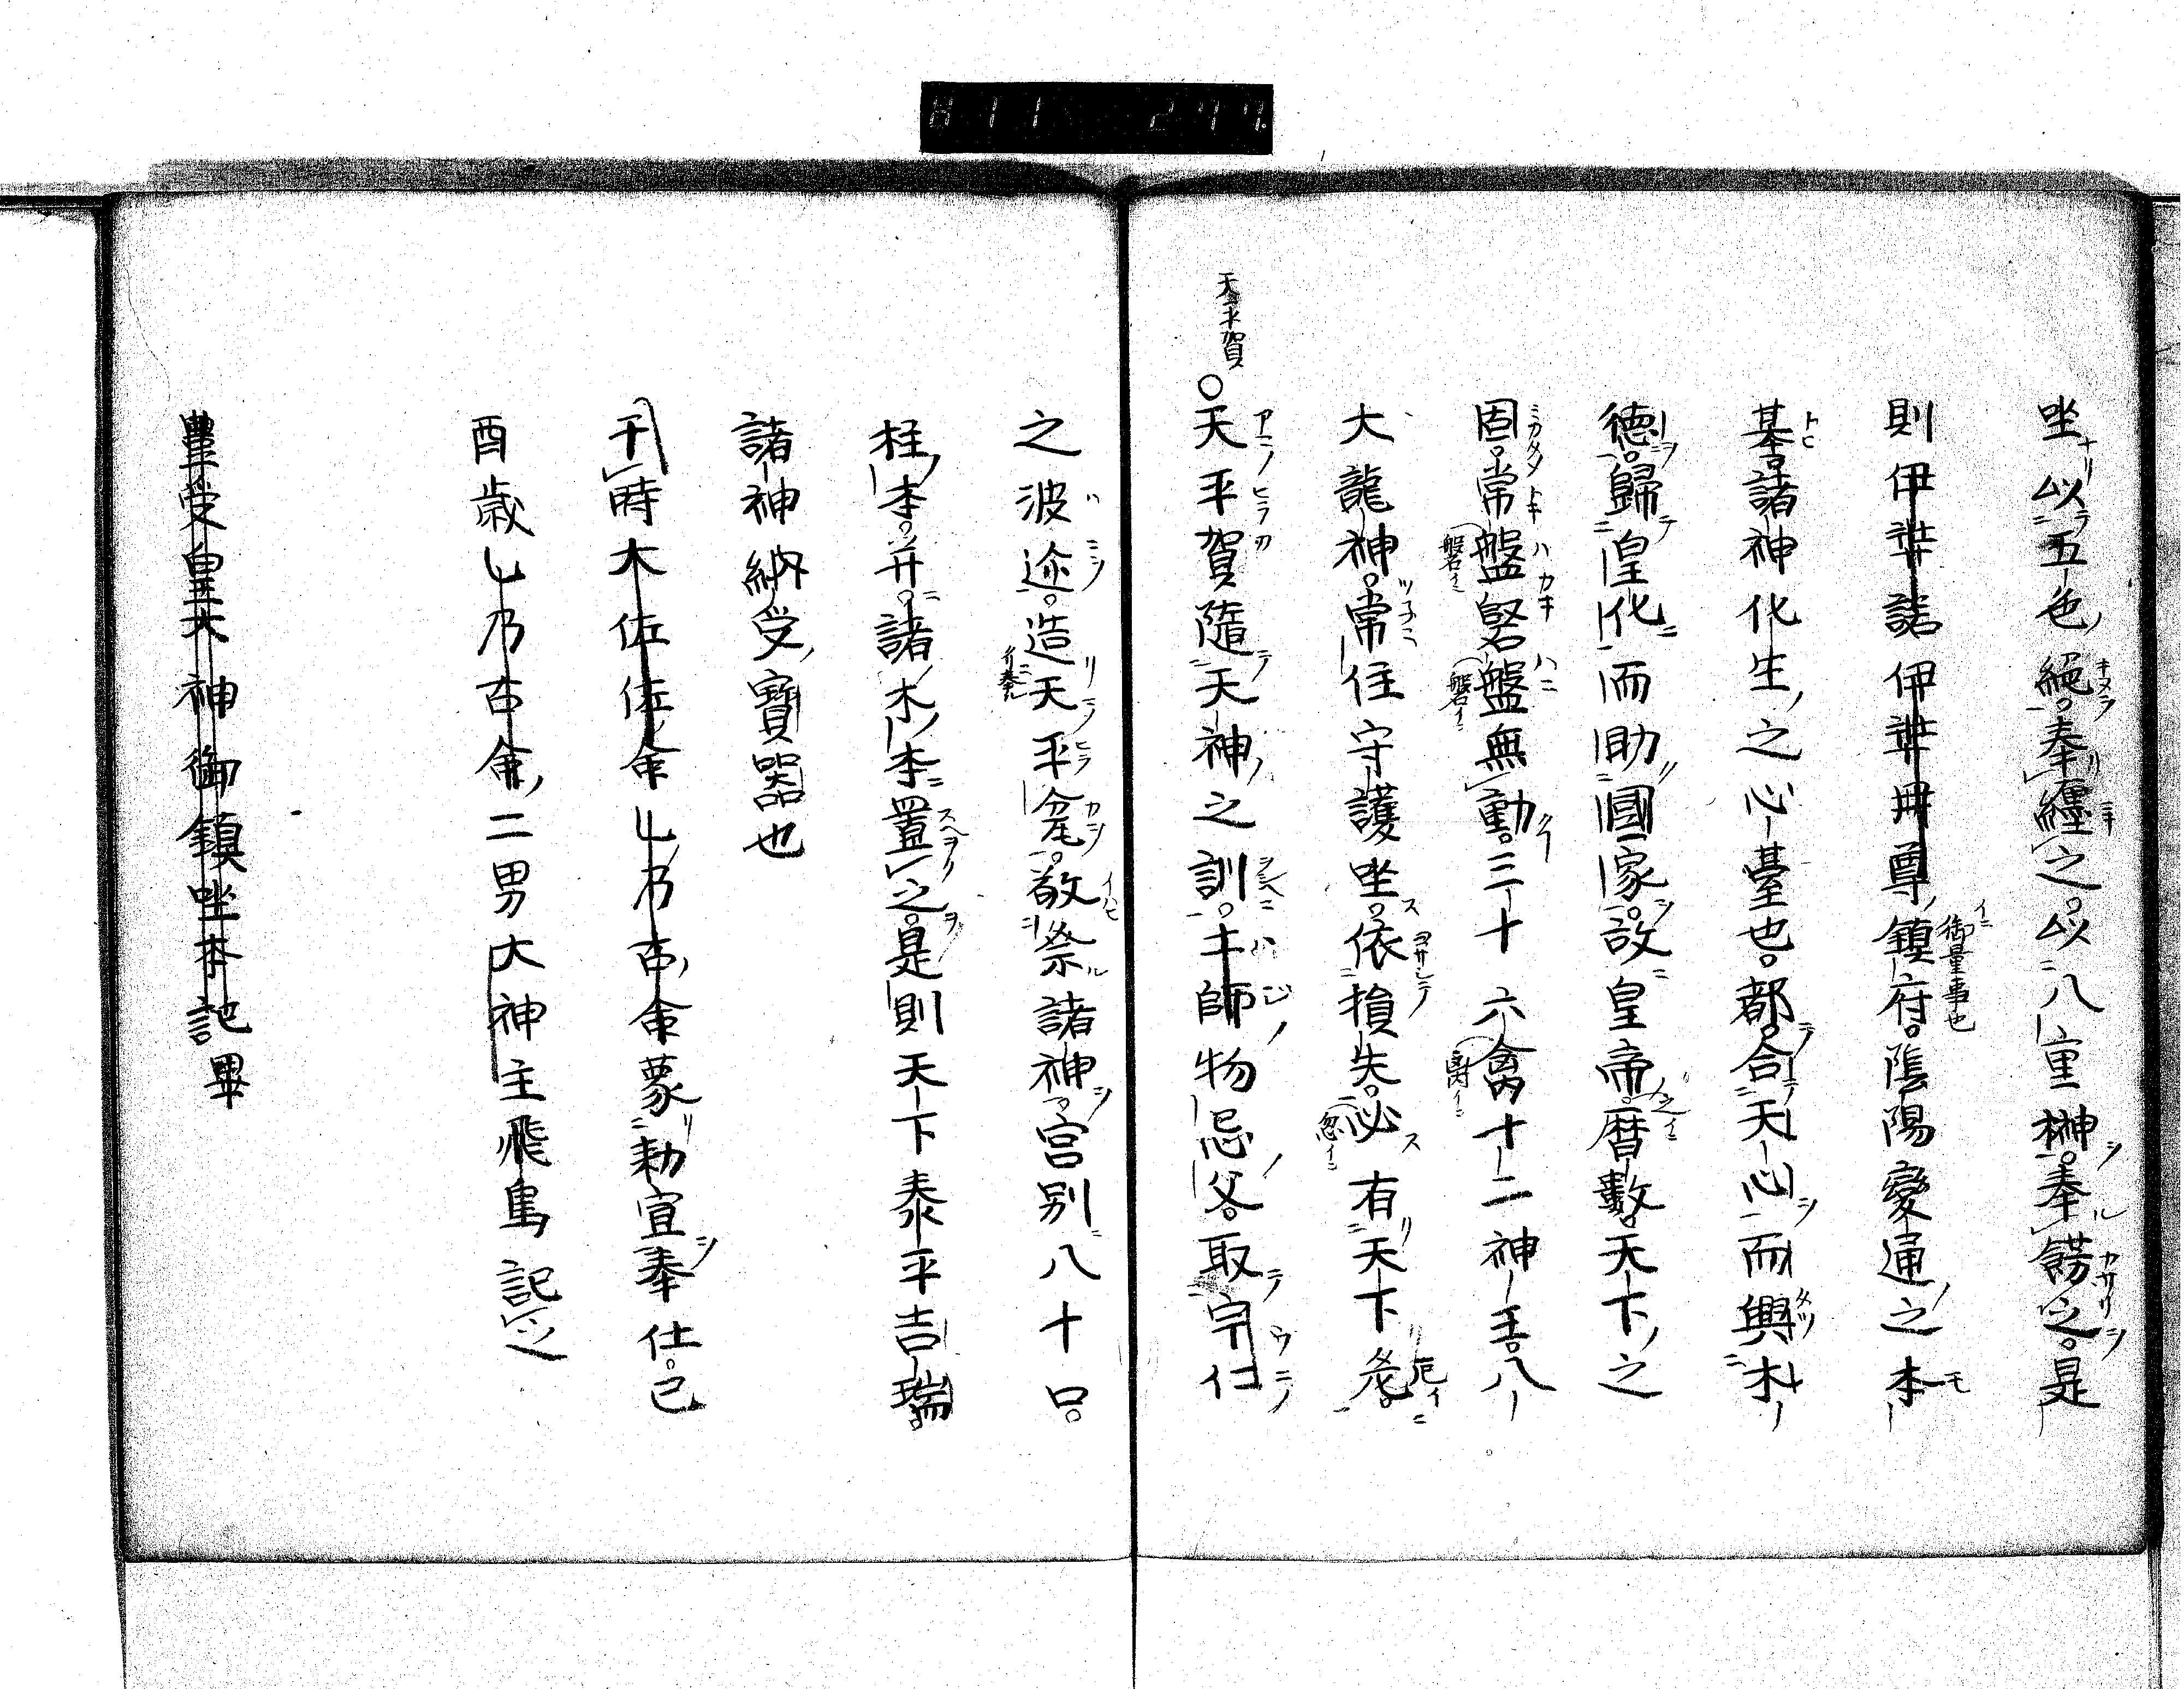 坐以五色絁奉纒之以八重榊奉餝之是
則伊弉諾伊弉冊尊鎮府陰陽變通之本
基諸神化生之心臺也都合天心而興木
德歸皇化而助國家故皇帝暦數天下之
固常盤堅盤無動三十六禽十二神王八
大龍神常住守護坐依損失必有天下危
天平賀
〇天平賀隨天神之訓土師物忌父取宇仁
之波迩造天平瓫敬祭諸神宮别八十口
柱本并諸木本置之是則天下泰平吉瑞
諸神納受寶器也
于時大佐佐命乚乃古命蒙勅宣奉仕己
酉歳乚乃古命二男大神主飛鳥記之
豊受皇太神御鎮坐本記畢